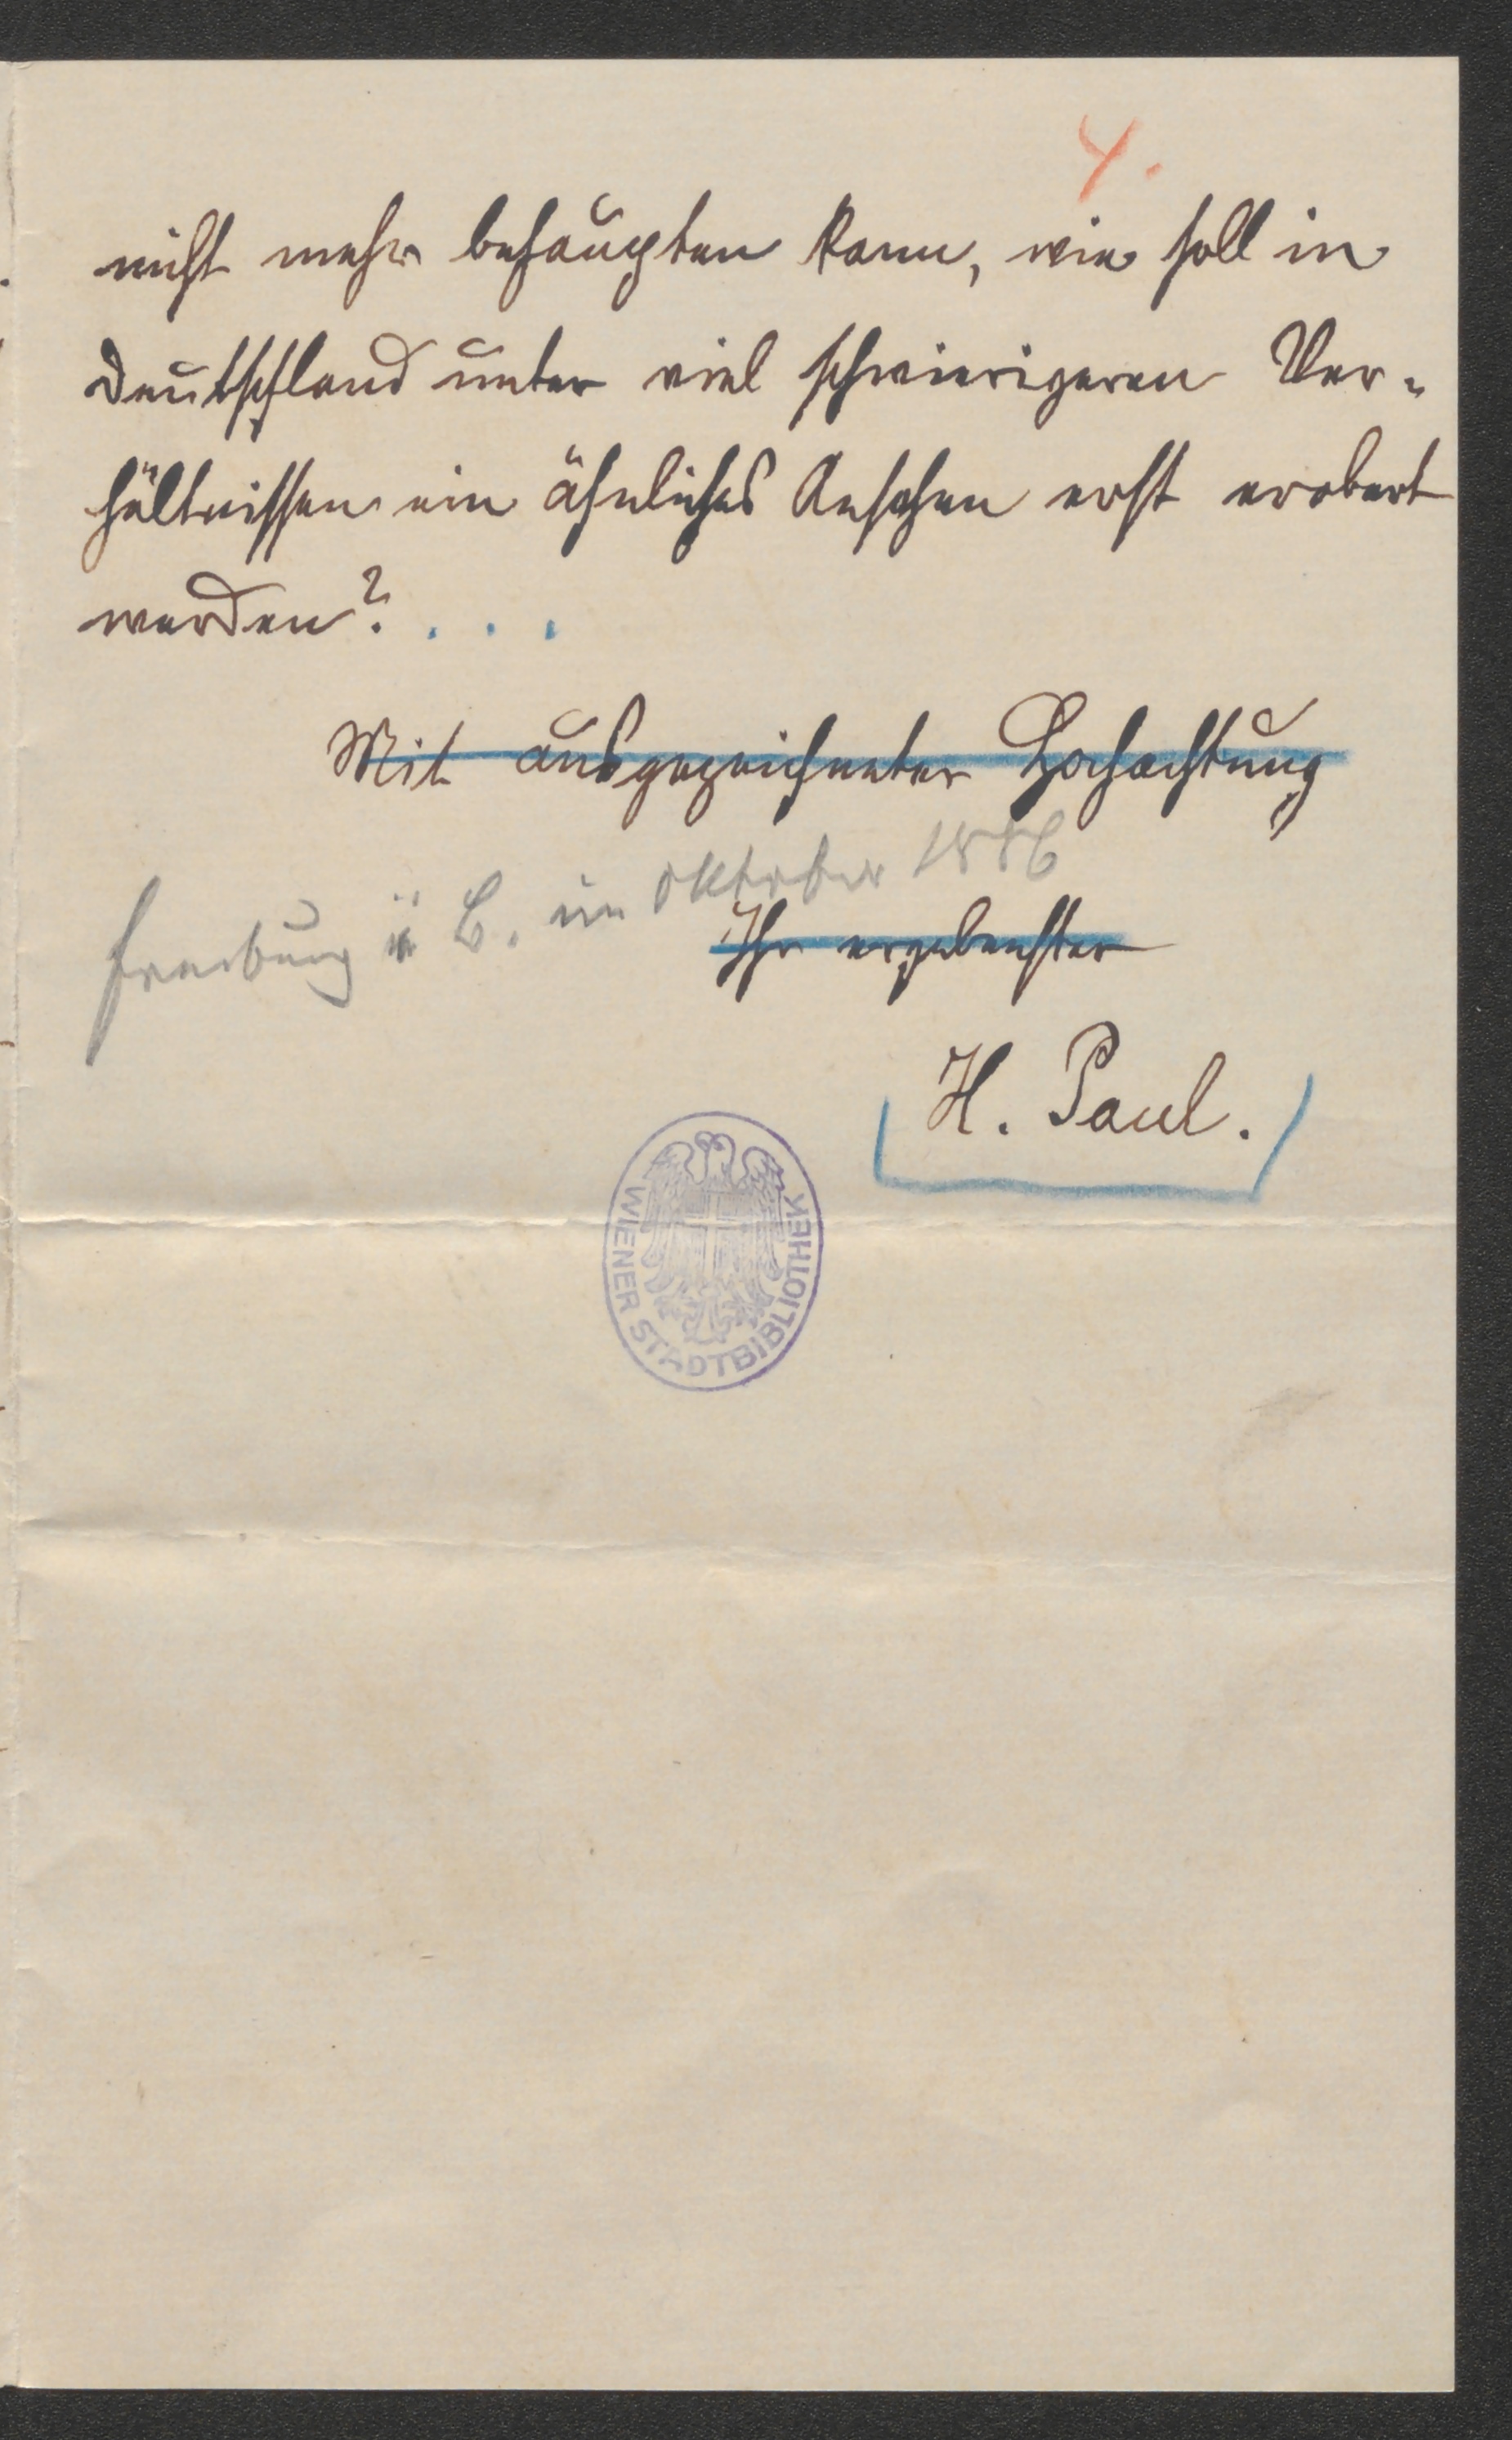 4.
nicht mehr behaupten kann, wie soll in
Deutschland unter viel schwierigeren Ver-
hältnissen ein ähnliches Ansehen erst erobert
werden? . . .
Mit ausgezeichneter Hochachtung
Freiburg i. B. im Oktober 1886
Ihr ergebenster
H. Paul.
WIENER STADTBIBLIOTHEK